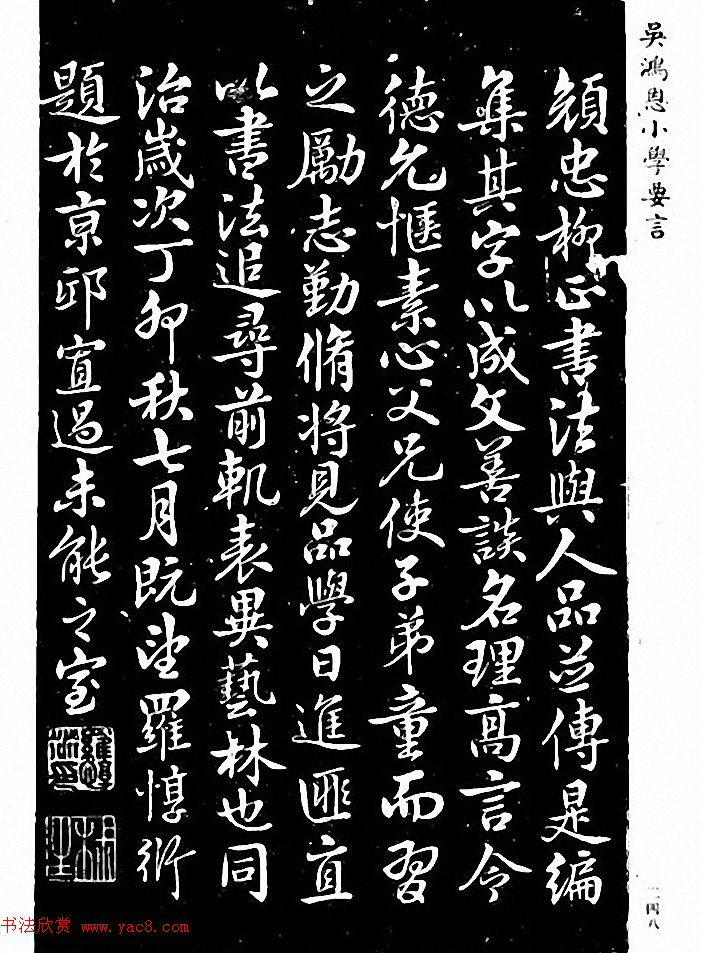 吳鴻恩小學要言
顔忠柳正書法與人品並傳是編
集其字以成文善談名理高言令
德允愜素心父兄使子弟童而習
之勵志勤脩將見品學日進匪直
以書法追尋前軌表異藝林也同
治歲次丁卯秋七月既望羅惇衍
題於京邸寡過未能之室
羅惇衍印
椒生
书法欣赏 www.yac8.com